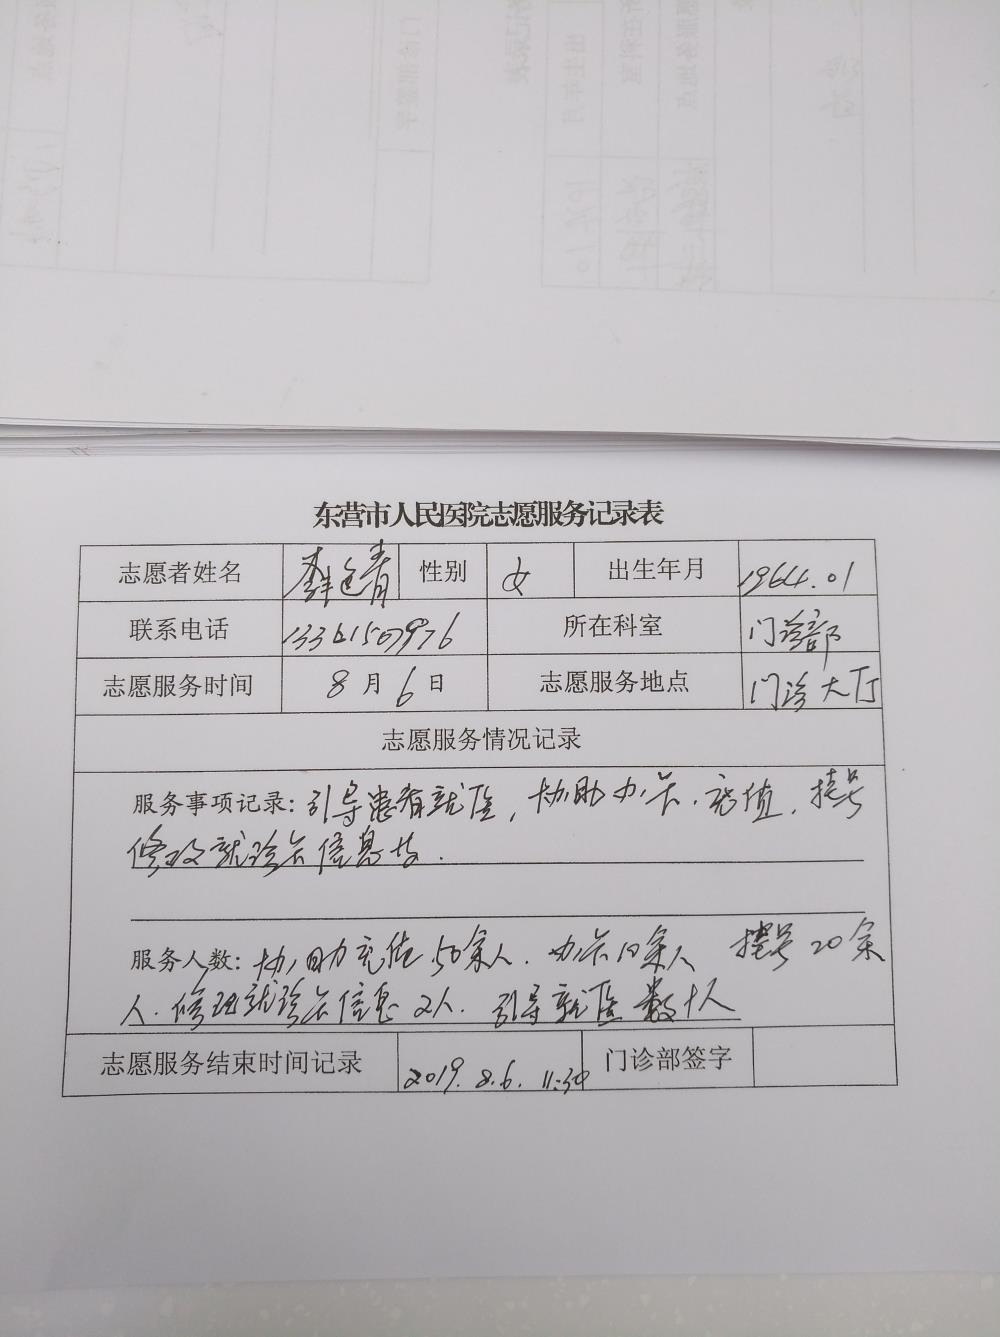 东营市人民医院志愿服务记录表
志愿者姓名 性别 女 出生年月 1964.01
联系电话 所在科室 门诊部
志愿服务时间 8月6日 志愿服务地点 门诊大厅
志愿服务情况记录
服务事项记录: 引导患者就医, 协助办卡.充值.挂号
修改就诊卡信息等.
服务人数: 协助充值50余人. 办卡10余人 挂号20余
人.修改就诊卡信息2人. 引导就医数十人
志愿服务结束时间记录 2019.8.6. 11:30 门诊部签字